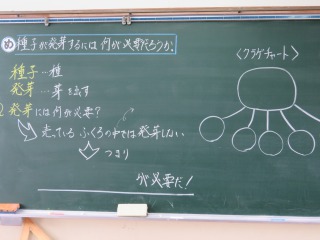 め 種子が発芽するには何が必要だろうか。
<クラゲチャート>
種子…種
発芽…芽を出す
発芽には何が必要?
売っている ふくろの中では発芽しない
つまり
が必要だ!